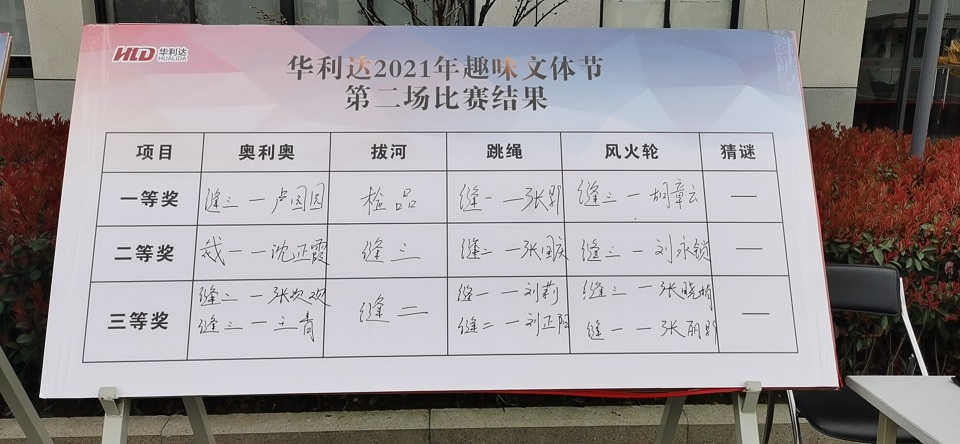 HLD 华利达
HUALIDA
华利达2021年趣味文体节
第二场比赛结果
项目 奥利奥 拔河 跳绳 风火轮 猜谜
一等奖 缝三一卢园园 检品 缝一一张影 缝三一胡章云 —
二等奖 裁一一沈正霞 缝三 缝二一张国庆 缝三一刘永锁 —
三等奖 缝三一张欢欢 缝二 缝一一刘莉 缝三一张晓娟 —
缝三一王青 缝二一刘正阳 缝一一张丽影